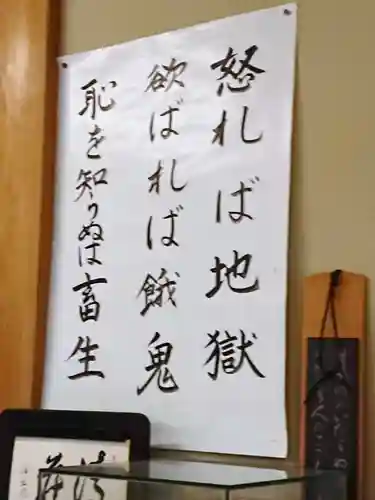 怒れば地獄
欲ばれば餓鬼
恥を知りぬは畜生